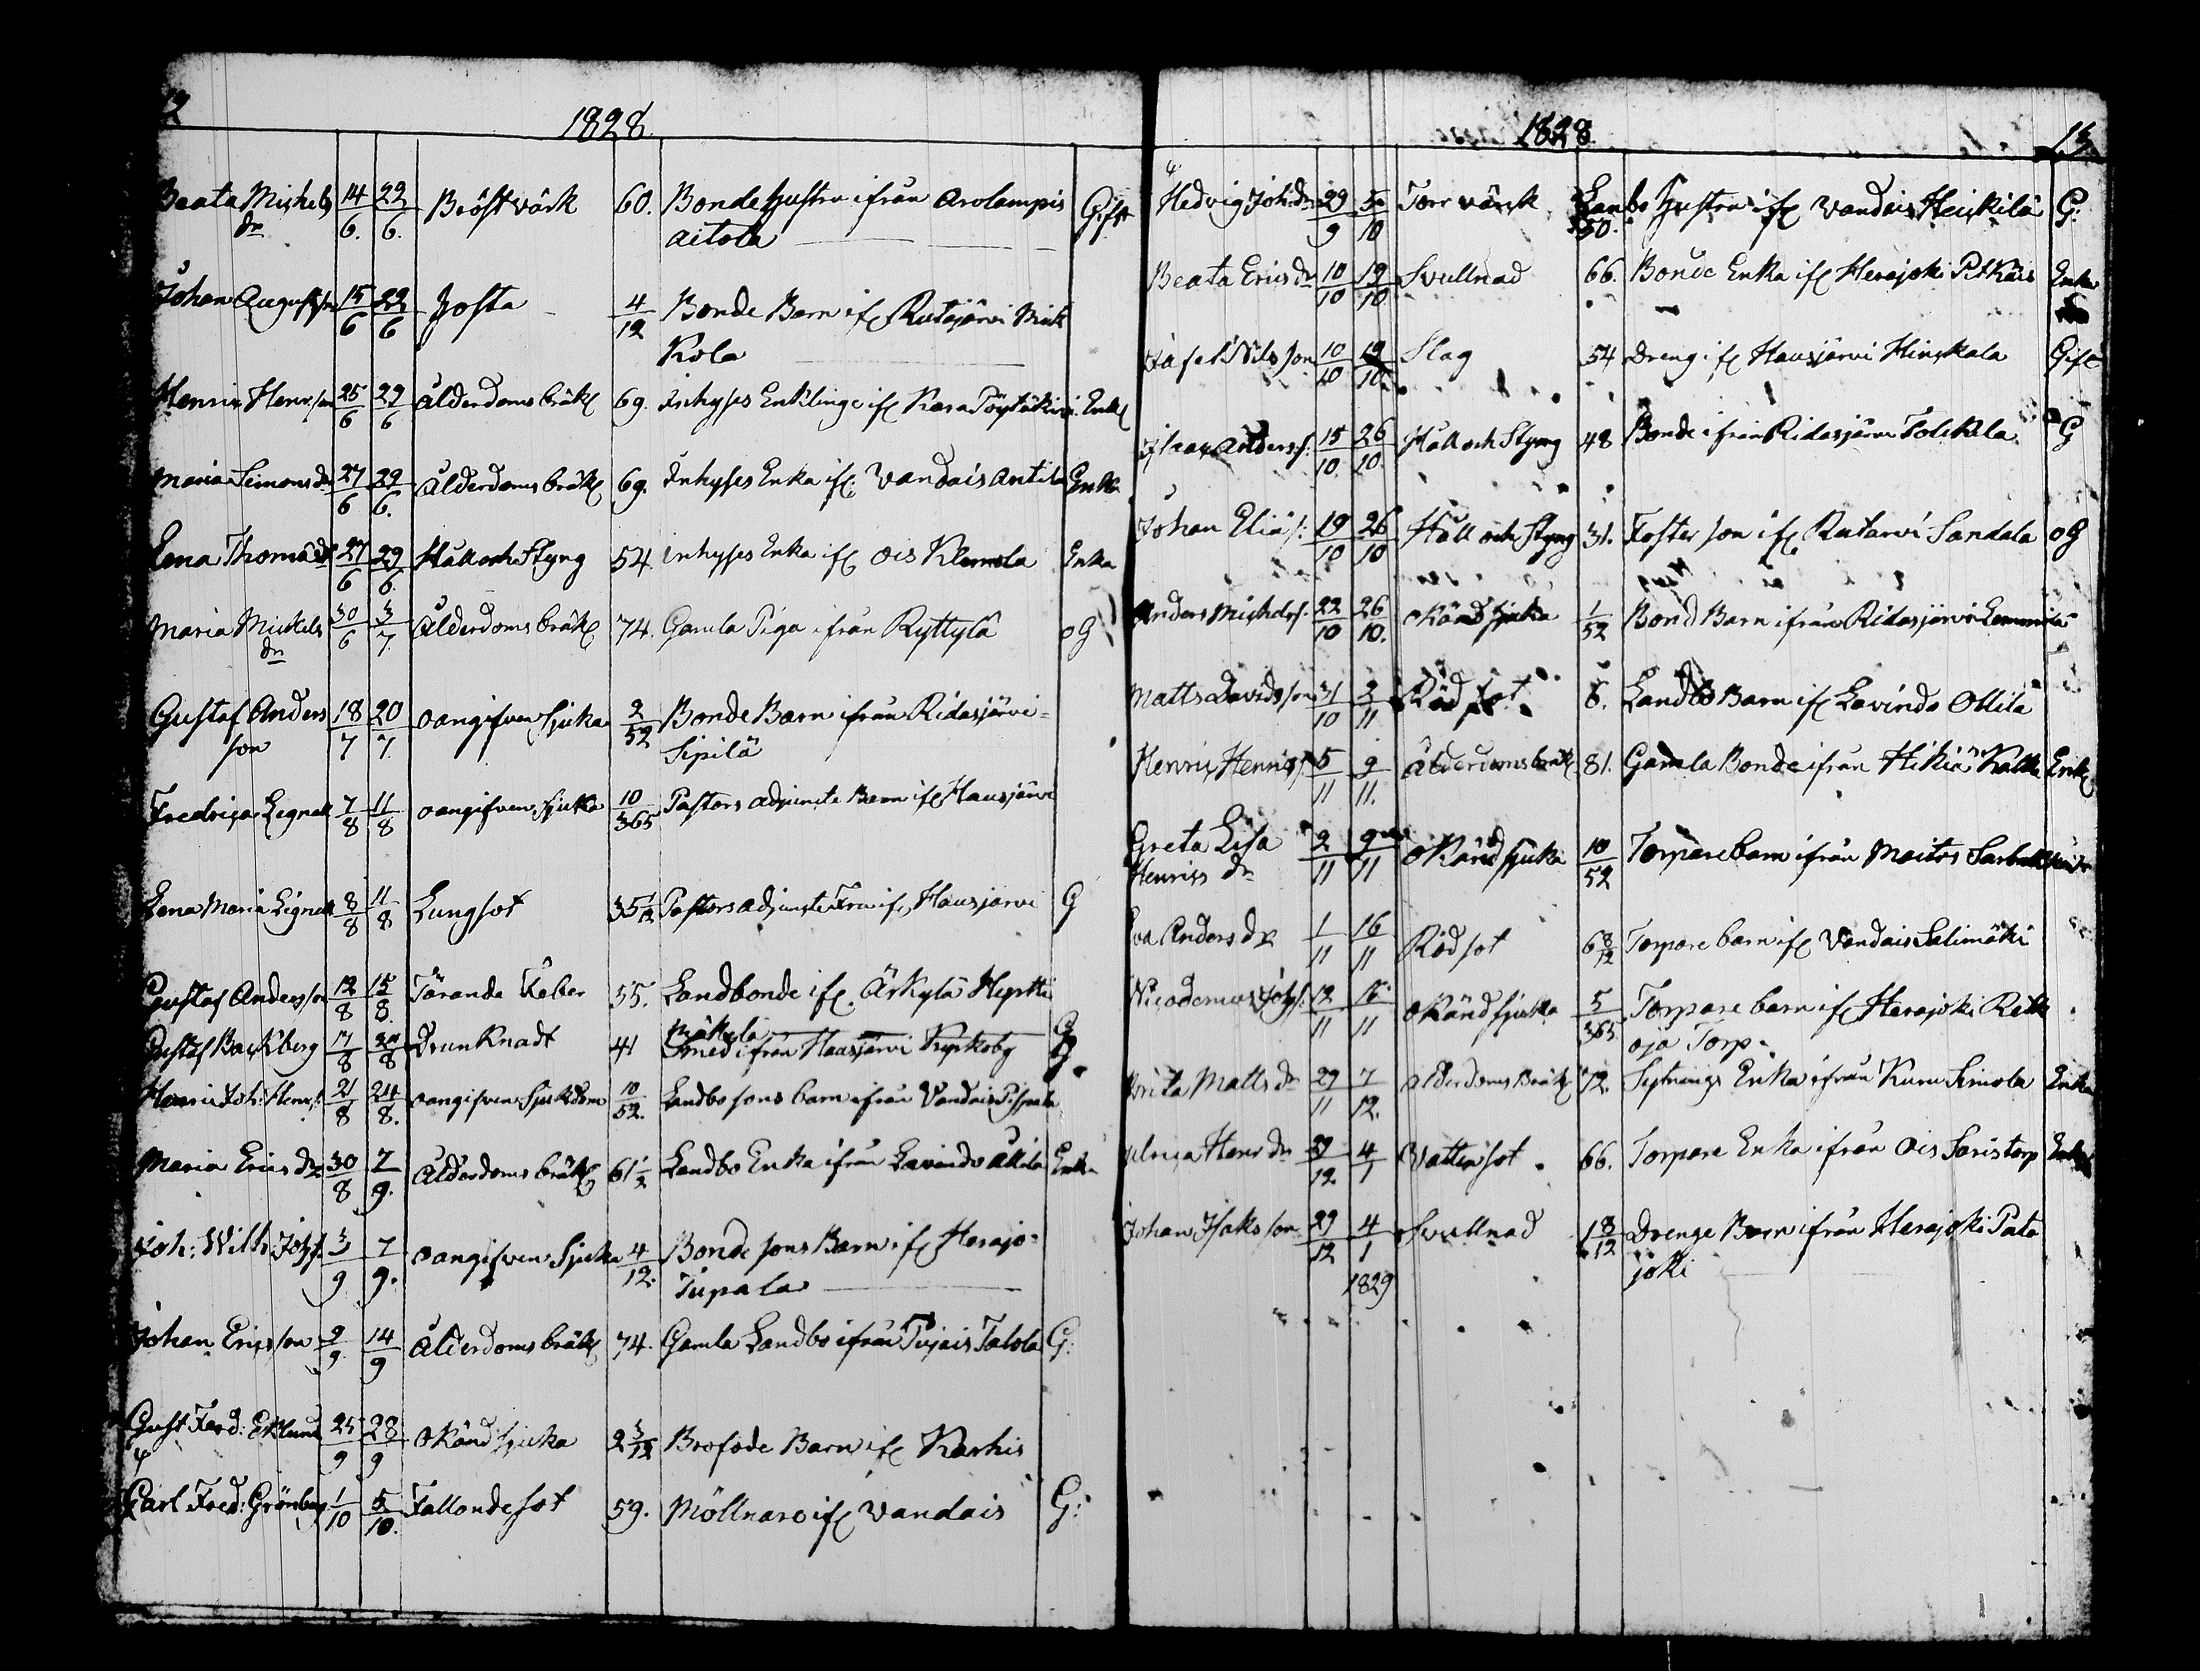 12
1828
Beata Michels 14/6. 29/6. Bröstvärk 60. Bonde hustru ifrån Arolampis Gift
dr aitola
Johan August son 15/6 29/6 Hosta 4/12 Bonde Barn if Rutajärvi Mick
Kola
Henric Henr. son 25/6 29/6 ålderdoms bräk 69. Inhyses Enkling if Kara Töytäkivi Enkl
Maria Simons dr 27/6 29/6. ålderdoms bräk 69. Inhyses Enka if Vandais Antila Enka
Lena Thomædr 27/6 29/6. Håll och Styng 54. Inhyses Enka if Ois Klemola Enka
Maria Mickels 30/6 3/7. ålderdoms bräk 74. Gamla Piga ifrån Ryttylä oG
dr
Gustaf Anders 18/7 20/7. oangifven Sjuka 2/52 Bonde Barn ifrån Ridasjärvi
son Sipilä
Fredrica Lignell 7/8 11/8 oangifven Sjuka 10/365 Pastors adjuncts Barn if Hausjärvi
Lena Maria Lignell 8/8 11/8 Lungsot 35 1/2 Pastors adjuncts Fru if Hausjärvi G
Gustaf Anders son 12/8 15/8. Tärande Feber 55. Landbonde if Äskylä Hertti
Mäkelä G
Gustaf Backberg 17/8 20/8 Drunknadt 41 Smed ifrån Hausjärvi Kyrkoby G
Henric Joh: Henr. s 21/8 24/8. oangifven Sjukdom 10/52. Landbo sons barn ifrån Vandais Pispala
Maria Erics dr 30/8 7/9. ålderdoms bräk 61 1/2 Landbo Enka ifrån Lavinda Ukila Enka
Joh: Wilh. Johs s. 3/9 7/9. oangifven Sjuka 4/12. Bonde sons Barn if Herajo-
Tupala
Johan Erics son 9/9. 14/9 ålderdoms bräk 74. Gamla Landbo ifrån Pujais Talola G:
Gust. Ferd: Eklund 25/9 28/9 okänd sjuka 2 3/12 Brofode Barn if Karhis
Carl Fred: Grönberg 1/10 5/10. Fallandesot 59. Möllnare if Vandais G:
1828. 13
Hedvig Joh: dr 29/9 5/10 Torr värk Landbo hustru if Vandais Heickilä G:
50.
Beata Erics dr 10/10 19/10 Svullnad 66. Bonde Enka if Herajoki Pitkäis Enka
Nils son 10/10 19/10. Slag 54 Dreng if Hausjärvi Hinskala Gift
Isaac Anders s. 15/10. 26/10. Håll och Styng 48 Bonde ifrån Ridasjärvi Tolckila G
Johan Eliæ s: 19/10 26/10 Håll och Styng 31. Foster son if Rutarvi Sandala oG
Anders Michels s. 22/10 26/10. okänd sjuka 1/52 Bond Barn ifrån Ridasjärvi Lemmilä
Matts Davids son 31/10 2/11 Röd sot 6. Landbo Barn if Lavinda Ollila
Henric Henrics s 5/11 9/11. ålderdoms bräk 81. Gamla Bonde ifrån Hikiä Enkl
Greta Lisa 2/11 9/11 okänd sjuka 10/52 Torpare barn ifrån Maitos
Henrics dr
Eva Anders dr 1/11 16/11 Rödsot 6 8/12 Torpare barn if Vandais Salimäki
Nicodemus Johs s. 12/11 16/11 okänd sjuka 5/365. Torpare barn if Herajoki
oja Torp.
Brita Matts dr 29/11 7/12. ålderdoms Bräk 72. Sytnings Enka ifrån Kuru Simola Enka
Ulrica Henr dr 12. 4/1 Vattusot 66. Torpare Enka ifrån Ois Saris torp Enka
Johan Isaks son 29/12 4/1 Svullnad 1 8/12 Drenge Barn ifrån Herajoki Pata
1829 joki